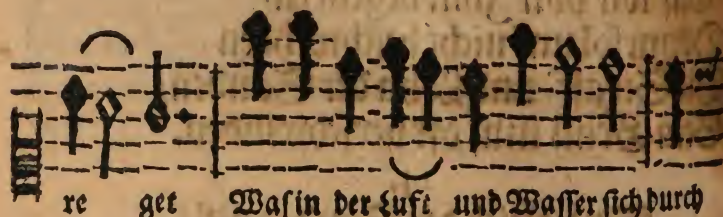 re get Was in der Luft und Wasser sich durch